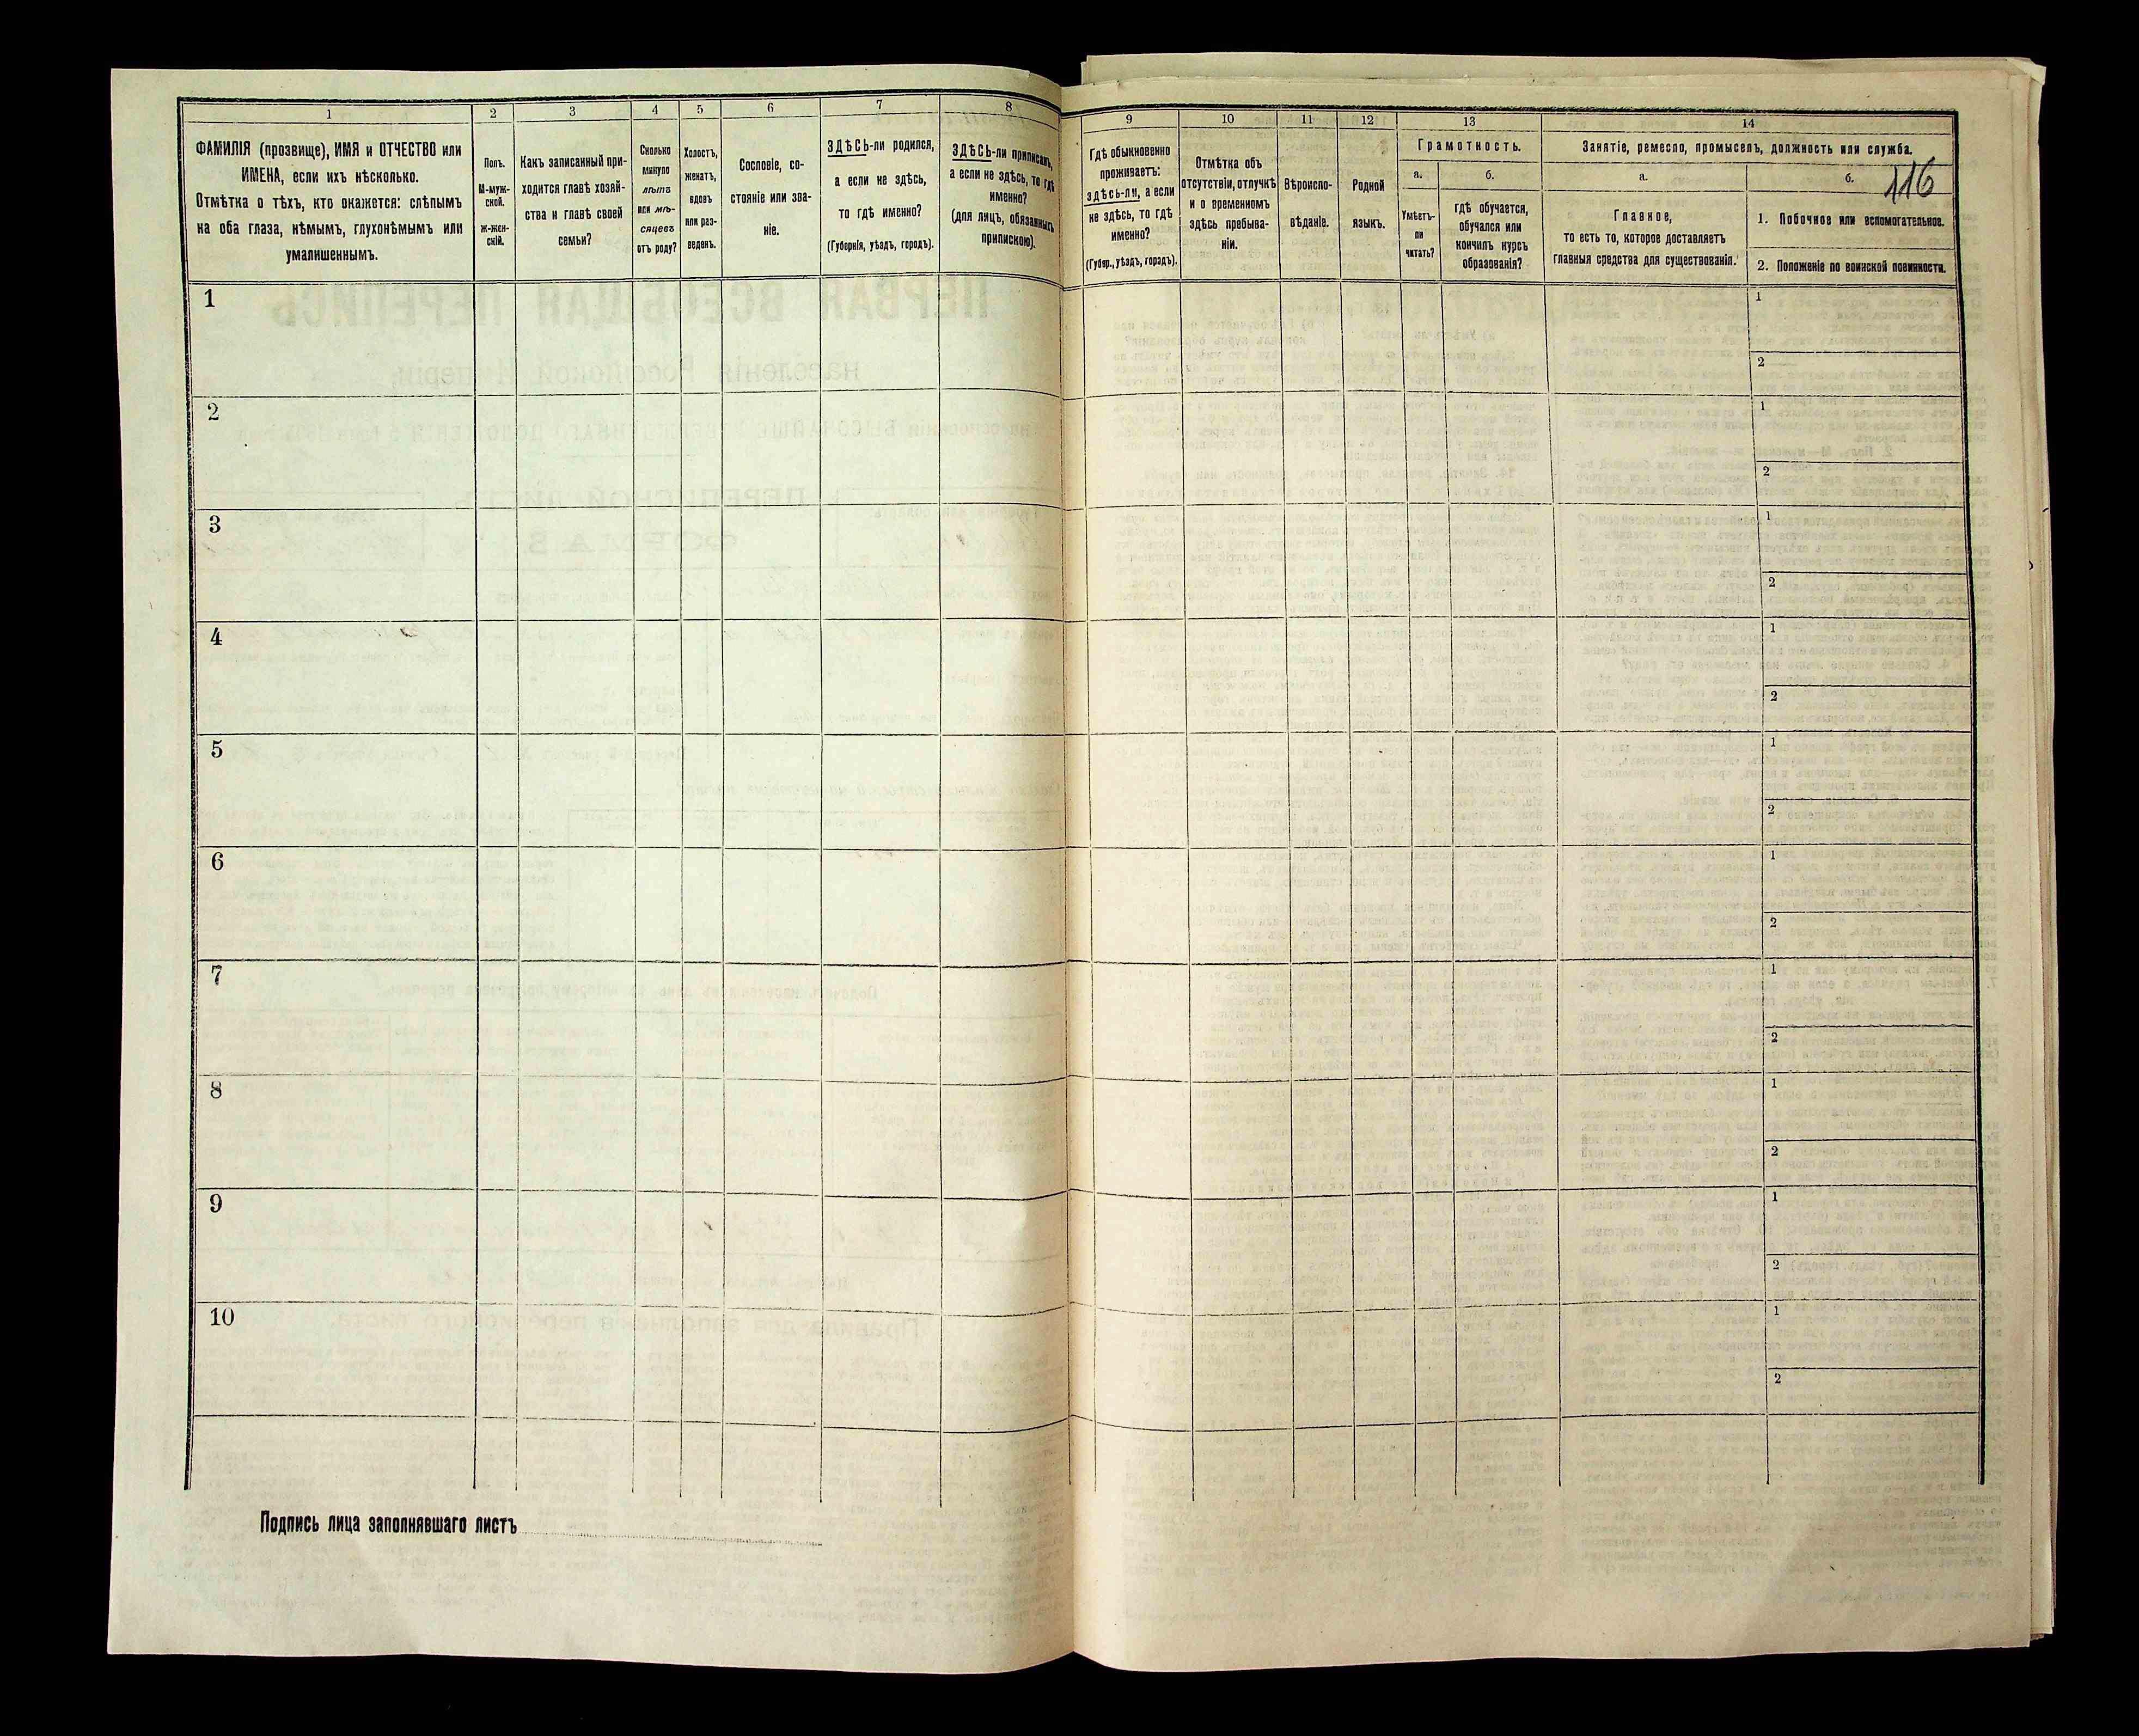 1
ФАМИЛІЯ (прозвище), ИМЯ и ОТЧЕСТВО или
ИМЕНА, если ихъ нѣсколько.
Отмѣтка о тѣхъ, кто окажется: слѣпымъ
на оба глаза, нѣмымъ, глухонѣмымъ или
умалишеннымъ.
2
Полъ.
М-муж-
ской.
ж-жен-
скій.
3
Какъ записанный при-
ходится главѣ хозяй-
ства и главѣ своей
семьи?
4
Сколько
минуло
лѣтъ
или мѣ-
сяцевъ
отъ роду?
5
Холостъ,
женатъ,
вдовъ
или раз-
веденъ.
6
Сословіе, со-
стояніе или зва-
ніе.
7
ЗДѢСЬ-ли родился,
а если не здѣсь,
то гдѣ именно?
(Губернія, уѣздъ, городъ).
8
ЗДѢСЬ-ли приписанъ,
а если не здѣсь, то гдѣ
именно?
(для лицъ, обязанныхъ
припискою).
9
Гдѣ обыкновенно
проживаетъ:
здѣсь-ли, а если
не здѣсь, то гдѣ
именно?
(Губер., уѣздъ, городъ).
10
Отмѣтка объ
отсутствіи, отлучкѣ
и о временномъ
здѣсь пребыва-
ніи.
11
Вѣроиспо-
вѣданіе.
12
Родной
языкъ.
13
Грамотность.
а.
Умѣетъ-
ли
читать?
б.
гдѣ обучается,
обучался или
кончилъ курсъ
образованія?
14
Занятіе, ремесло, промыселъ, должность или служба.
116
а.
Главное,
то есть то, которое доставляетъ
главныя средства для существованія.
б.
1. Побочное или вспомогательное.
2. Положеніе по воинской повинности.
1
1
2
2
1
2
3
1
2
4
1
2
5
1
2
6
1
2
7
1
2
8
1
2
9
1
2
10
1
2
Подпись лица заполнявшаго листъ